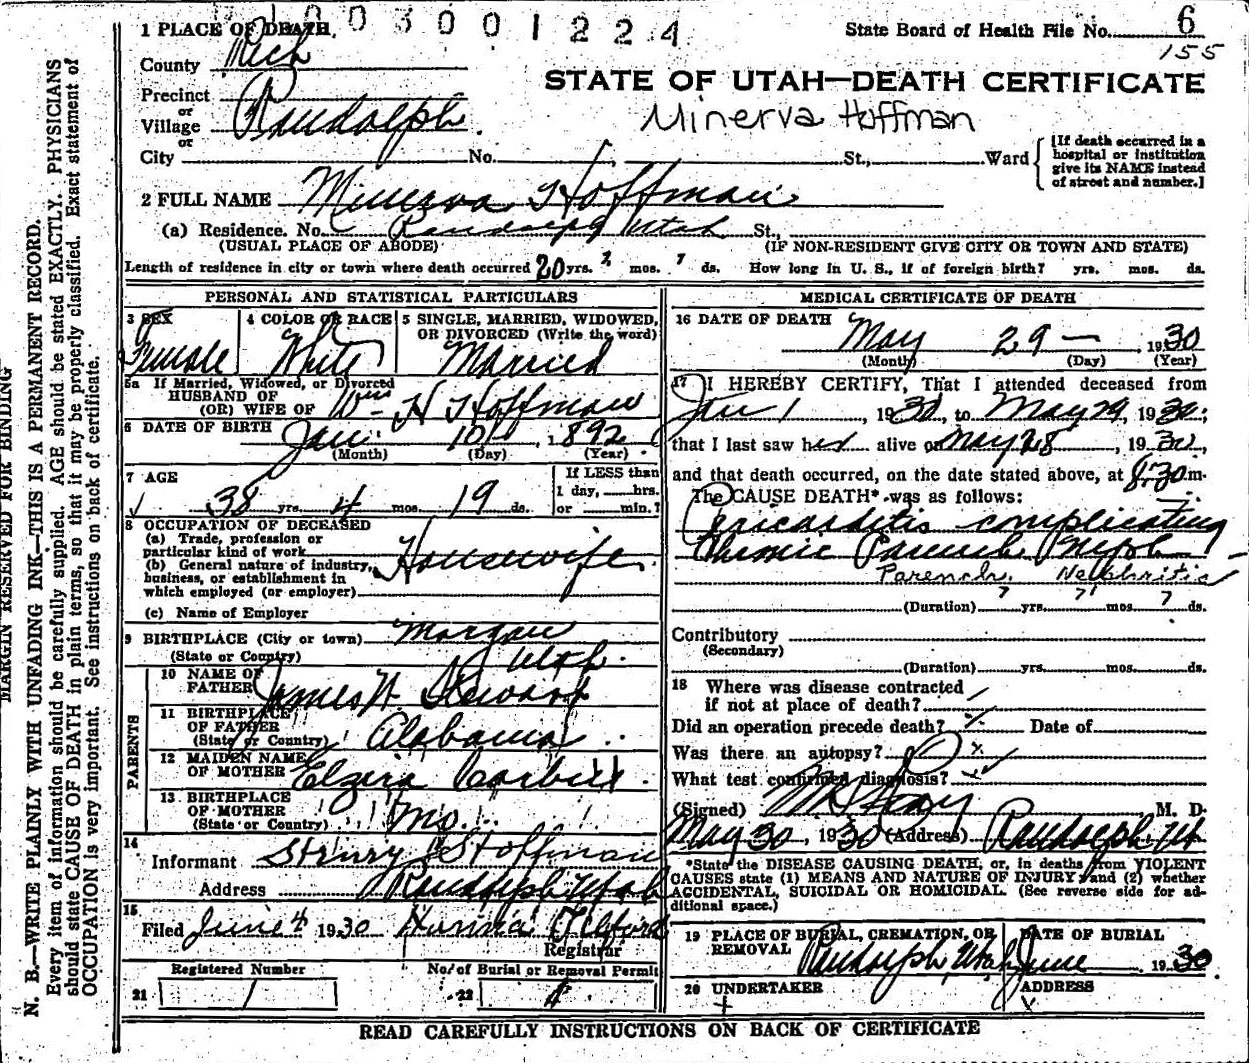 1003001224
1 PLACE OF DEATH,
State Board of Health File No. 6
155
County Rich
STATE OF UTAH—DEATH CERTIFICATE
Precinct
or
Village Randolph.
Minerva Hoffman
or
City No. St., Ward
[If death occurred in a
hospital or institution
give its NAME instead
of street and number.]
2 FULL NAME Minerva Hoffman
(a) Residence. No. Randolph Utah St.,
(USUAL PLACE OF ABODE) (IF NON-RESIDENT GIVE CITY OR TOWN AND STATE)
Length of residence in city or town where death occurred 20 yrs. mos. ds. How long in U. S., if of foreign birth? yrs. mos. ds.
PERSONAL AND STATISTICAL PARTICULARS
3 SEX
Female
4 COLOR OR RACE
White
5 SINGLE, MARRIED, WIDOWED,
OR DIVORCED (Write the word)
Married
5a If Married, Widowed, or Divorced
HUSBAND OF
(OR) WIFE OF Wm H Hoffman
6 DATE OF BIRTH Jan 10th, 1892
(Month) (Day) (Year)
7 AGE
38 yrs. 4 mos. 19 ds.
If LESS than
1 day, hrs.
or min.?
8 OCCUPATION OF DECEASED
(a) Trade, profession or
particular kind of work
Housewife
(b) General nature of industry,
business, or establishment in
which employed (or employer)
(c) Name of Employer
9 BIRTHPLACE (City or town) Morgan
(State or Country) Utah.
PARENTS
10 NAME OF
FATHER James W. Stewart
11 BIRTHPLACE
OF FATHER
(State or Country) Alabama
12 MAIDEN NAME
OF MOTHER Elzira
13 BIRTHPLACE
OF MOTHER
(State or Country) Mo.
14
Informant Hoffman
Address Randolph Utah
15
Filed June 4 1930
Registrar
Registered Number
21 1
No. of Burial or Removal Permit
22
MEDICAL CERTIFICATE OF DEATH
16 DATE OF DEATH
May 29 — 1930
(Month) (Day) (Year)
17 I HEREBY CERTIFY, That I attended deceased from
Jan 1, 1930, to May 29, 1930;
that I last saw her alive on May 28, 1930,
and that death occurred, on the date stated above, at 8:30 m.
The CAUSE DEATH* was as follows:
Pericarditis complicating
Chronic Parench Neph
Parench. Nephritis
(Duration) ? yrs. ? mos. ? ds.
Contributory
(Secondary)
(Duration) yrs. mos. ds.
18 Where was disease contracted
if not at place of death?
Did an operation precede death? Date of
Was there an autopsy?
What test confirmed diagnosis?
(Signed) M. D.
May 30 1930 (Address) Randolph, Ut
*State the DISEASE CAUSING DEATH, or, in deaths from VIOLENT
CAUSES state (1) MEANS AND NATURE OF INJURY and (2) whether
ACCIDENTAL, SUICIDAL OR HOMICIDAL. (See reverse side for ad-
ditional space.)
19 PLACE OF BURIAL, CREMATION, OR
REMOVAL Randolph Utah
DATE OF BURIAL
June 1930
20 UNDERTAKER
ADDRESS
READ CAREFULLY INSTRUCTIONS ON BACK OF CERTIFICATE
MARGIN RESERVED FOR BINDING
N. B.—WRITE PLAINLY WITH UNFADING INK—THIS IS A PERMANENT RECORD.
Every item of information should be carefully supplied. AGE should be stated EXACTLY. PHYSICIANS
should state CAUSE OF DEATH in plain terms, so that it may be properly classified. Exact statement of
OCCUPATION is very important. See instructions on back of certificate.